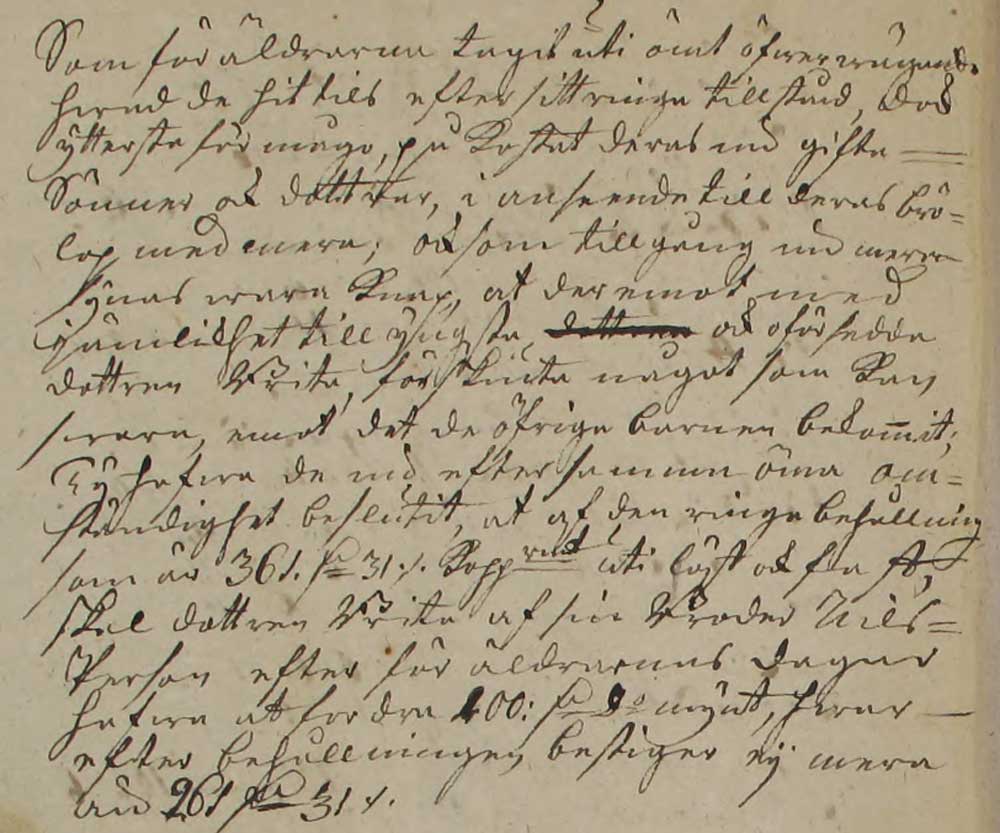 Som föräldrarna tagit uti ömt öfwerwägande
hwad de hittils efter sitt ringa tillstånd, och
ytterste förmågo, på Kostat deras nu gifta
Söner och döttrar, i anseende till deras brö-
lop med mera; och som tillgång nu mera
synas wara Knap, at deremot med
jämlikhet till yngsta och oförsedda
dottren Brita, förskjuta något som Kan
swara, emot det de öfriga barnen bekommit;
Ty hafwa de nu efter samma öma om-
ständighet beslutit, at af den ringa behållning
som är 361. dr 31 /. Koppmt uti löst och fast,
skal dottren Brita af sin Broder Nils
Person efter föräldrarnas dagar
hafwa at fordra 100: dr do mynt, hwar
efter behållningen bestiger ej mera
än 261 dr 31 /.